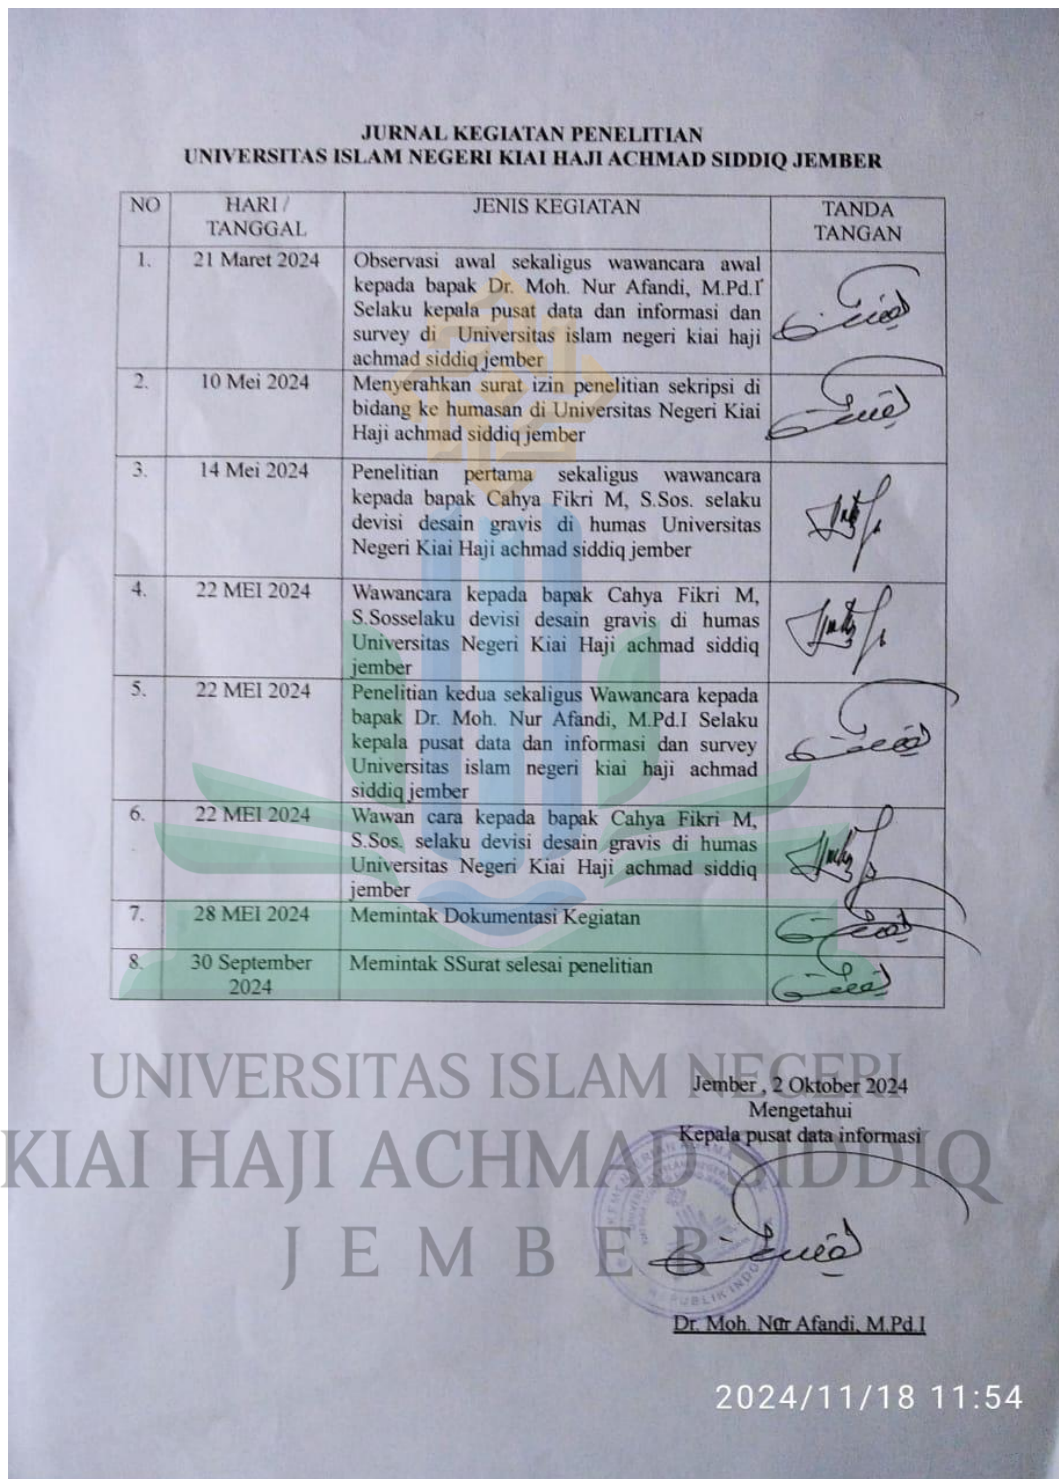 JURNAL KEGIATAN PENELITIAN
UNIVERSITAS ISLAM NEGERI KIAI HAJI ACHMAD SIDDIQ JEMBER
NO HARI / TANGGAL JENIS KEGIATAN TANDA TANGAN
1. 21 Maret 2024 Observasi awal sekaligus wawancara awal
kepada bapak Dr. Moh. Nur Afandi, M.Pd.I
Selaku kepala pusat data dan informasi dan
survey di Universitas islam negeri kiai haji
achmad siddiq jember
2. 10 Mei 2024 Menyerahkan surat izin penelitian sekripsi di
bidang ke humasan di Universitas Negeri Kiai
Haji achmad siddiq jember
3. 14 Mei 2024 Penelitian pertama sekaligus wawancara
kepada bapak Cahya Fikri M, S.Sos. selaku
devisi desain gravis di humas Universitas
Negeri Kiai Haji achmad siddiq jember
4. 22 MEI 2024 Wawancara kepada bapak Cahya Fikri M,
S.Sosselaku devisi desain gravis di humas
Universitas Negeri Kiai Haji achmad siddiq
jember
5. 22 MEI 2024 Penelitian kedua sekaligus Wawancara kepada
bapak Dr. Moh. Nur Afandi, M.Pd.I Selaku
kepala pusat data dan informasi dan survey
Universitas islam negeri kiai haji achmad
siddiq jember
6. 22 MEI 2024 Wawan cara kepada bapak Cahya Fikri M,
S.Sos. selaku devisi desain gravis di humas
Universitas Negeri Kiai Haji achmad siddiq
jember
7. 28 MEI 2024 Memintak Dokumentasi Kegiatan
8. 30 September 2024 Memintak SSurat selesai penelitian
UNIVERSITAS ISLAM NEGERI
KIAI HAJI ACHMAD SIDDIQ
JEMBER
Jember , 2 Oktober 2024
Mengetahui
Kepala pusat data informasi
Dr. Moh. Nur Afandi, M.Pd.I
2024/11/18 11:54